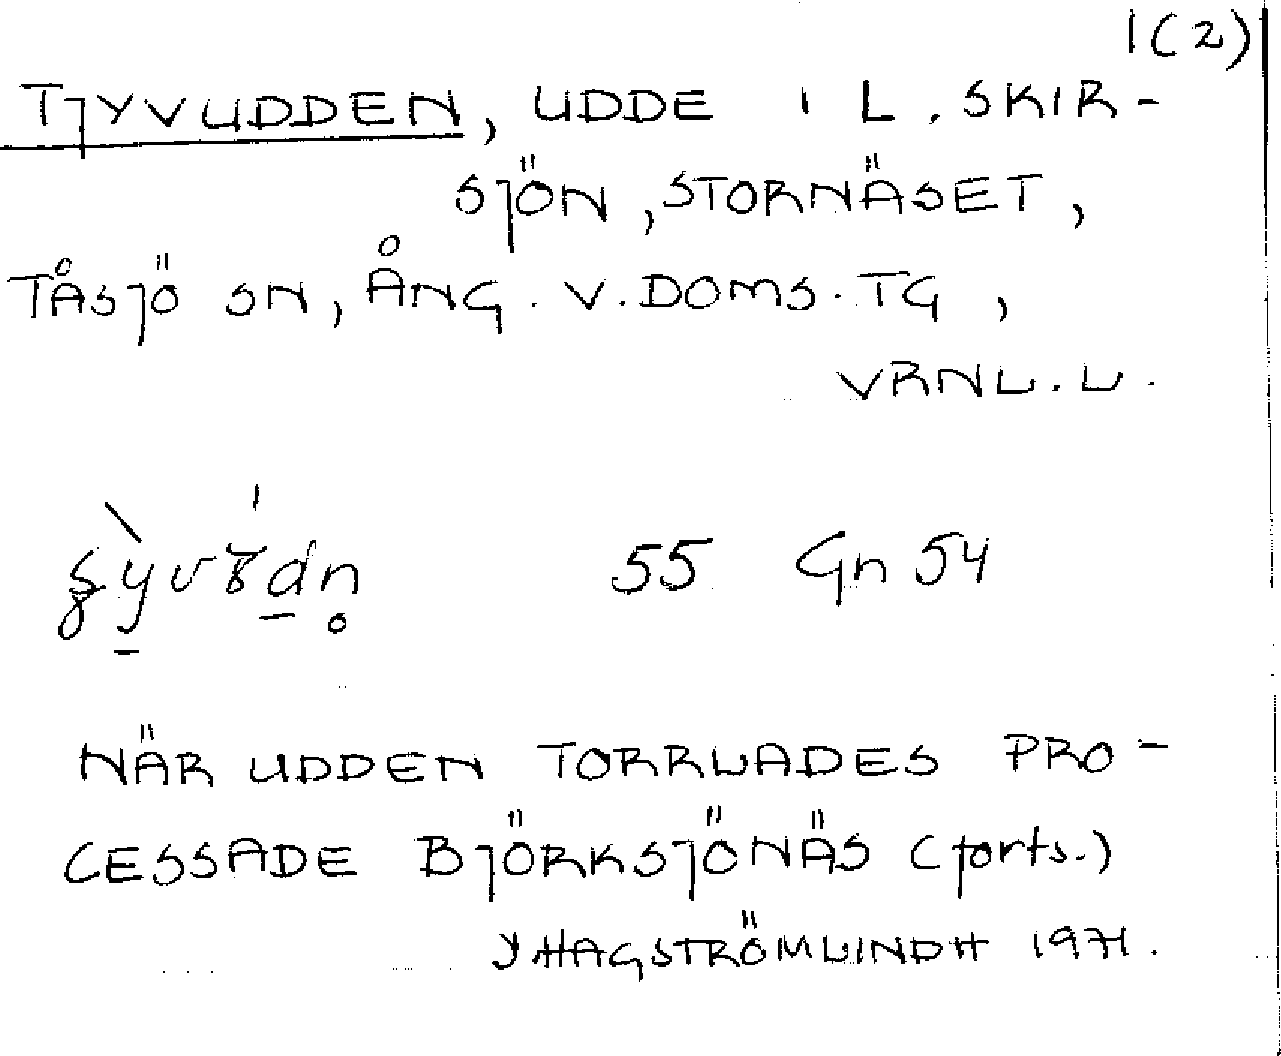 1(2)
TJYVUDDEN, UDDE I L. SKIR-
SJÖN, STORNÄSET,
TÅSJÖ SN, ÅNG. V. DOMS. TG,
VRNL. L.
55 Gn 54
NÄR UDDEN TORRLADES PRO-
CESSADE BJÖRKSJÖNÄS (forts.)
Y HAGSTRÖMLINDH 1971.